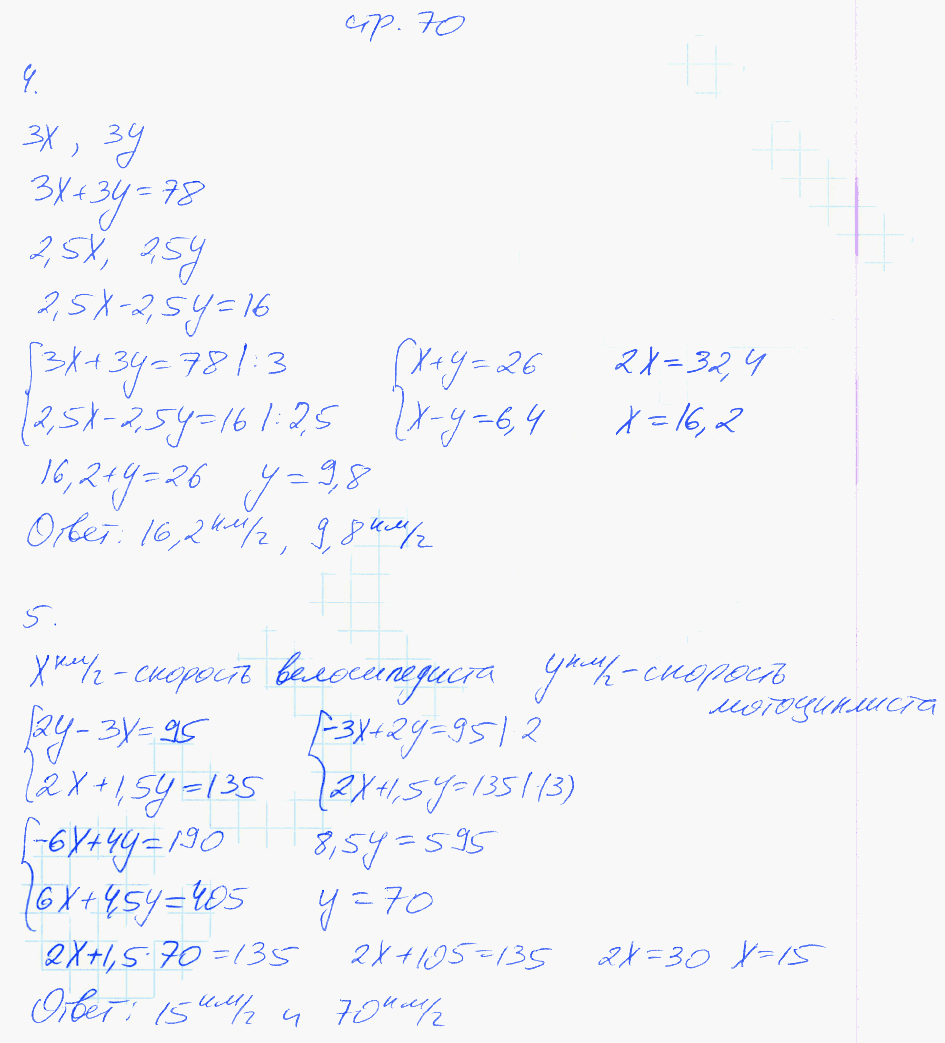 стр. 70
4.
3x, 3y
3x+3y=78
2,5x, 2,5y
2,5x-2,5y=16
{3x+3y=78 |:3 {x+y=26 2x=32,4
{2,5x-2,5y=16 |:2,5 {x-y=6,4 x=16,2
16,2+y=26 y=9,8
Ответ: 16,2 км/ч, 9,8 км/ч
5.
x км/ч - скорость велосипедиста y км/ч - скорость
мотоциклиста
{2y-3x=95 {-3x+2y=95 | 2
{2x+1,5y=135 {2x+1,5y=135 |·(3)
{-6x+4y=190 8,5y=595
{6x+4,5y=405 y=70
2x+1,5·70=135 2x+105=135 2x=30 x=15
Ответ: 15 км/ч и 70 км/ч